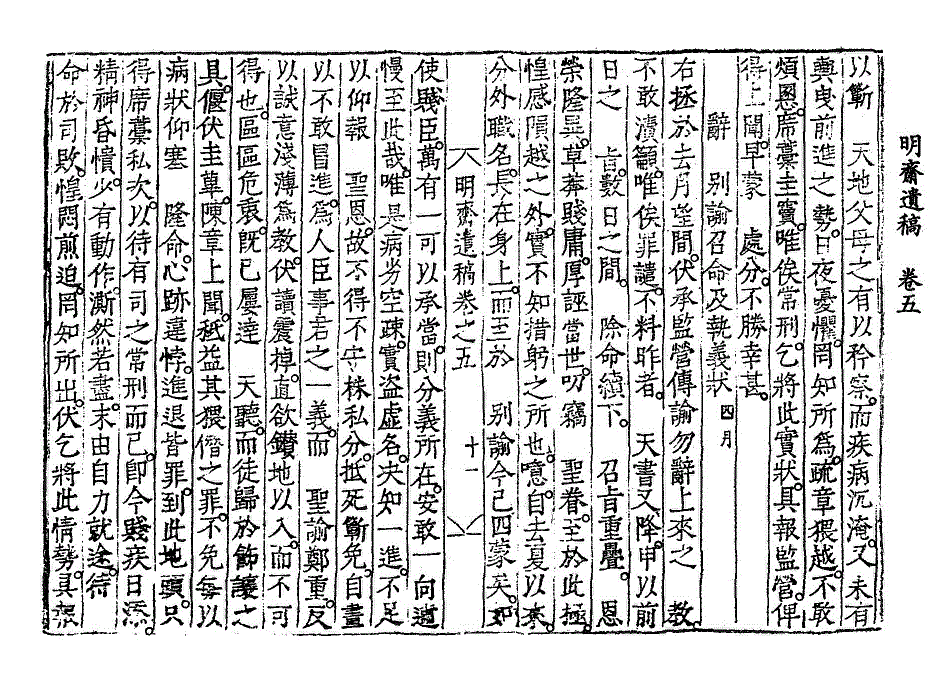 明齋遺稿　卷五
以斷　天地父母之有以矜察。而疾病沉淹。又未有
輿曳前進之勢。日夜憂懼。罔知所爲。疏章猥越。不敢
煩恩。席藁圭竇。唯俟常刑。乞將此實狀。具報監營。俾
得上聞。早蒙　處分。不勝幸甚。
辭　別諭召命及執義狀 四月
右拯於去月望間。伏承監營傳諭勿辭上來之　教。
不敢瀆籲。唯俟罪譴。不料昨者。　天書又降。申以前
日之　旨。數日之間。　除命續下。　召旨重疊。　恩
榮隆異。草莽賤庸。厚誣當世。叨竊　聖眷。至於此極。
惶感隕越之外。實不知措躬之所也。噫。自去夏以來。
分外職名。長在身上。而至於　別諭今已四蒙矣。如
明齋遺稿卷之五　十一
使賤臣。萬有一可以承當。則分義所在。安敢一向逋
慢至此哉。唯是病劣空疎。實盜虛名。決知一進。不足
以仰報　聖恩。故不得不守株私分。抵死斷免。自畫
以不敢冒進。爲人臣事君之一義。而　聖諭鄭重。反
以誠意淺薄爲教。伏讀震掉。直欲鑽地以入。而不可
得也。區區危衷。旣已屢達　天聽。而徒歸於飾讓之
具。偃伏圭蓽。陳章上聞。秪益其猥僭之罪。不免每以
病狀仰塞　隆命。心跡違悖。進退皆罪。到此地頭。只
得席藁私次。以待有司之常刑而已。卽今賤疾日添。
精神昏憒。少有動作。澌然若盡。末由自力就途。待
命於司敗。惶悶煎迫。罔知所出。伏乞將此情勢。具報